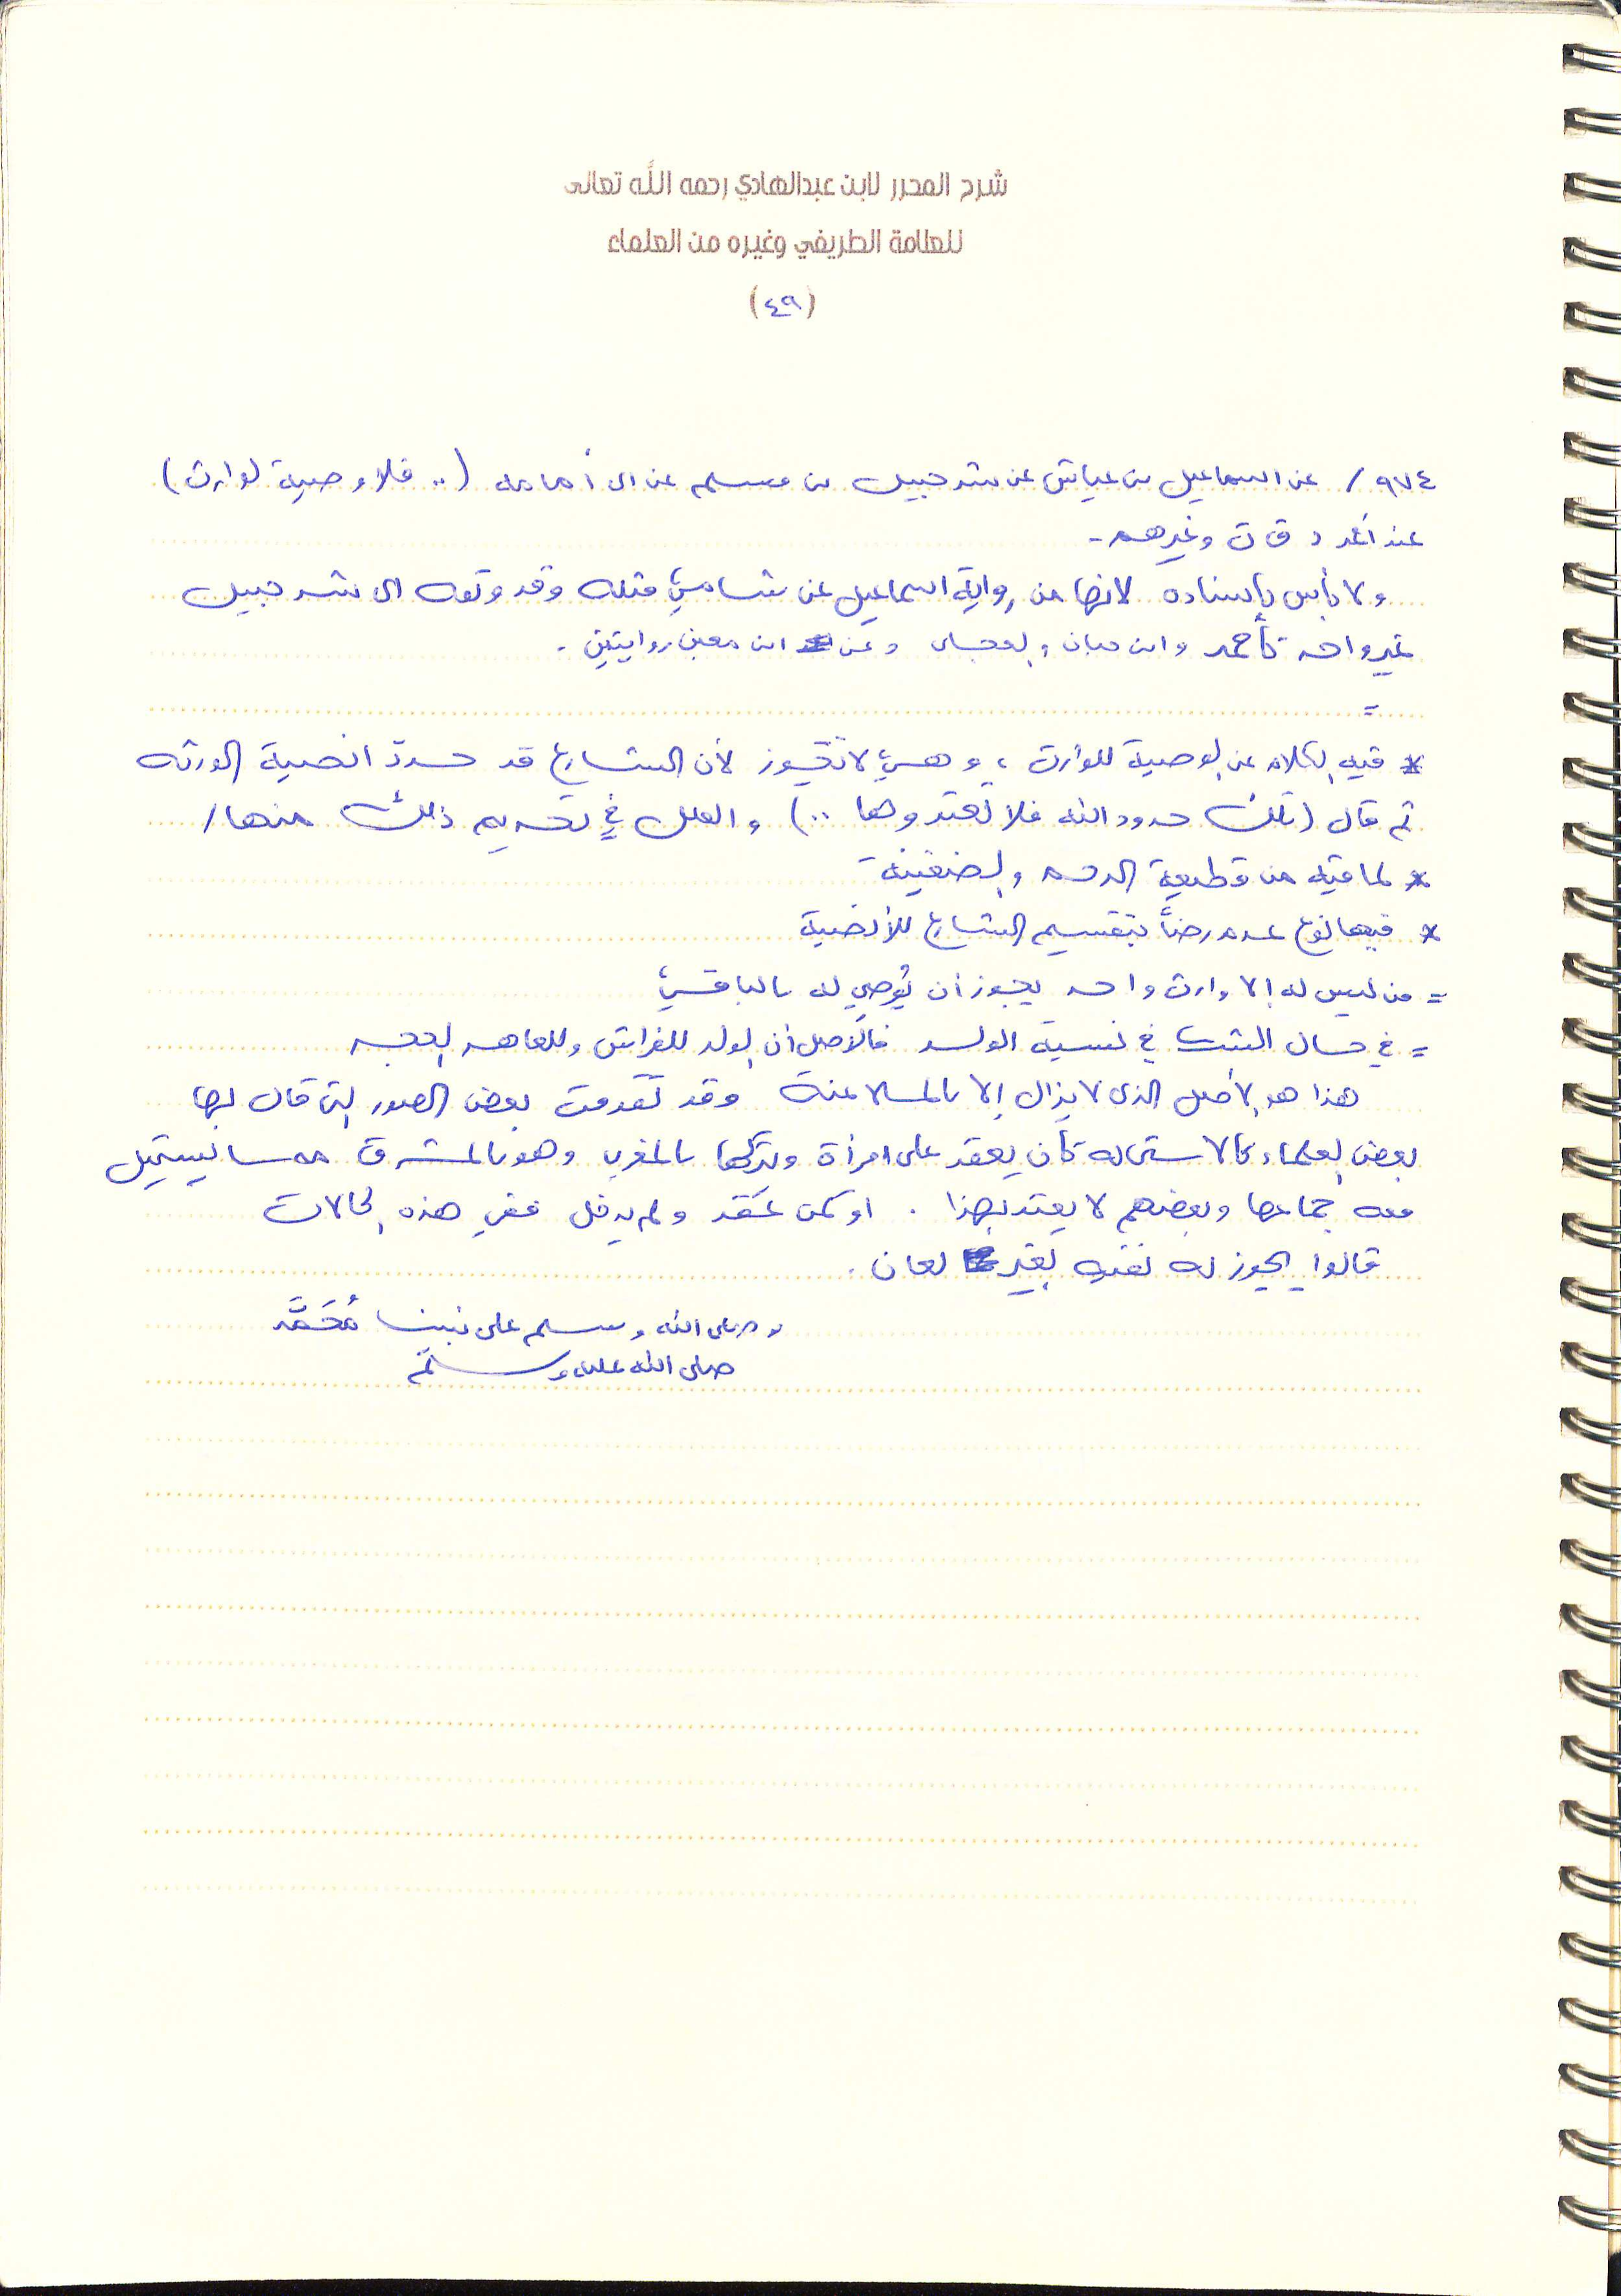 شرح المحرر لابن عبدالهادي رحمه الله تعالى
للعلامة الطريفي وغيره من العلماء
(٤٩)
٩٧٤/ عن اسماعيل بن عياش عن شرحبيل بن مسلم عن ابي أمامه (.. فلا وصية لوارث)
عند أحمد د ق ت وغيرهم -
ولا بأس بإسناده لانها من رواية اسماعيل عن شامي مثله وقد وثقه اي شرحبيل
غير واحد كأحمد وابن حبان والعجلي وعن ابن معين روايتين .
=
* فيه الكلام عن الوصية للوارث ، وهي لا تجوز لأن الشارع قد حدد انصبة الورثه
ثم قال (تلك حدود الله فلا تعتدوها ..) والعلل في تحريم ذلك منها/
* لما فيه من قطيعة الرحم والضغينة
* فيها نوع عدم رضىً بتقسيم الشارع للأنصبة
= من ليس له إلا وارث واحد يجوز أن يُوصي له بالباقي
= في حال الشك في نسبة الولد فالأصل أن الولد للفراش وللعاهر الحجر
هذا هو الأصل الذي لا يزال إلا بالملاعنة وقد تقدمت بعض الصور التي قال بها
بعض العلماء كالاستحاله كأن يعقد على امرأة ويتركها بالمغرب وهو بالمشرق مما يستحيل
معه جماعها وبعضهم لا يعتد بهذا . او كمن عقد ولم يدخل ففي هذه الحالات
قالوا يجوز له نفيه بغير لعان .
وصلى الله وسلم على نبينا مُحَمَّد
صلى الله عليه وسلم